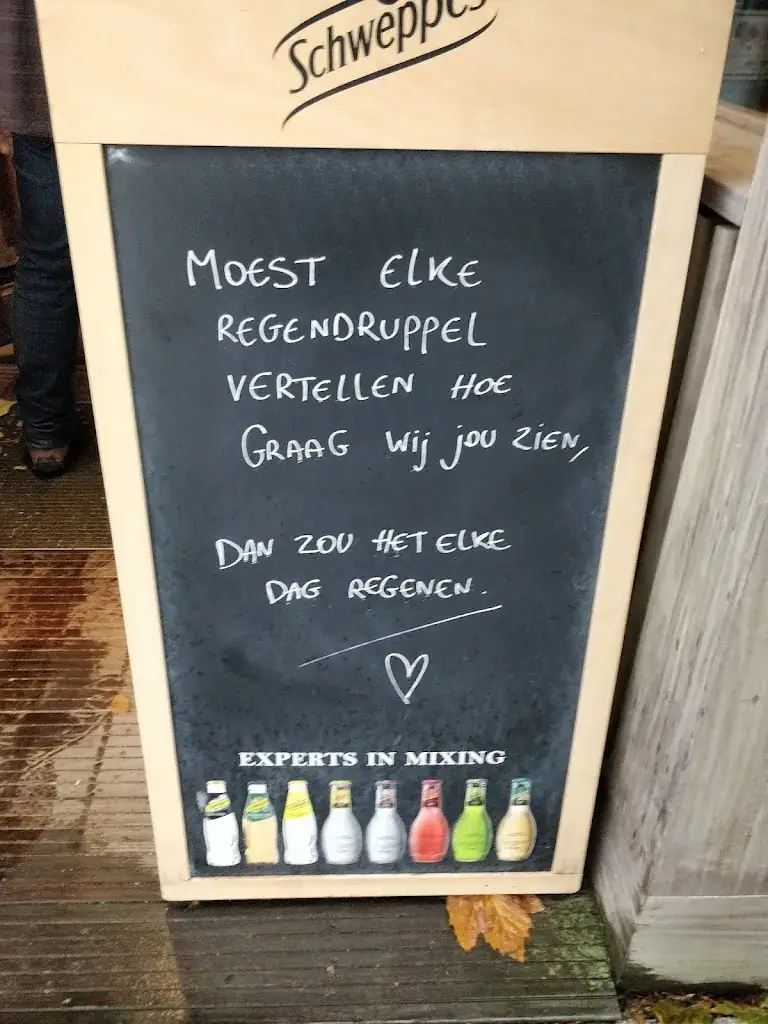 Schweppes
MOEST ELKE
REGENDRUPPEL
VERTELLEN HOE
GRAAG Wij jou ZIEN,
DAN ZOU HET ELKE
DAG REGENEN.
EXPERTS IN MIXING